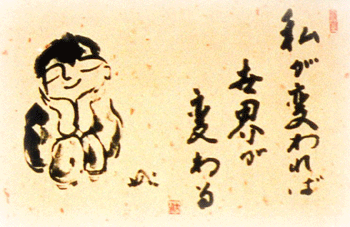 私が変われば
世界が
変わる